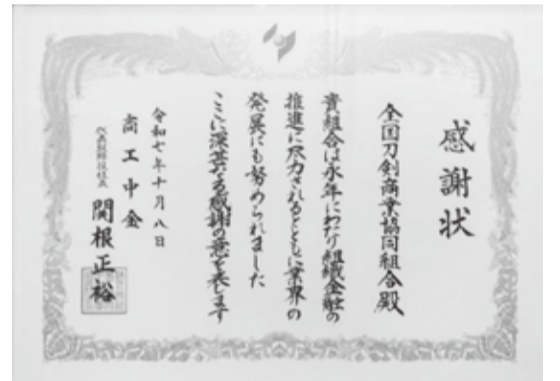 感謝状
全国刀剣商業協同組合殿
貴組合は永年にわたり組織金融の
推進に尽力されるとともに業界の
発展にも努められました
ここに深甚なる感謝の意を表します
令和七年十月八日
商工中金
代表取締役社長
関根正裕